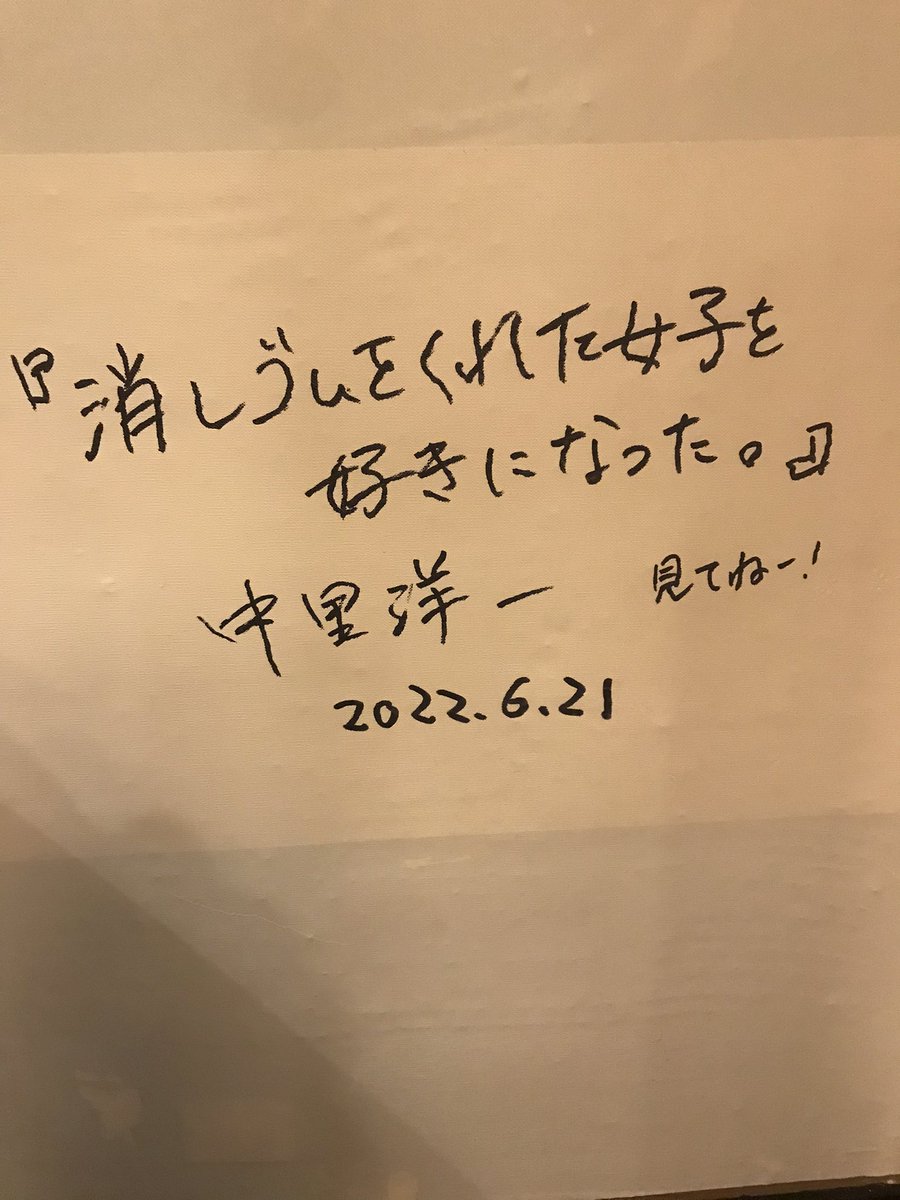 『消しゴムをくれた女子を
好きになった。』
中里洋一 見てねー!
2022.6.21